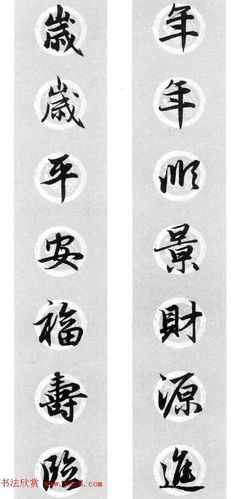 年年順景財源進
歲歲平安福壽臨
书法欣赏